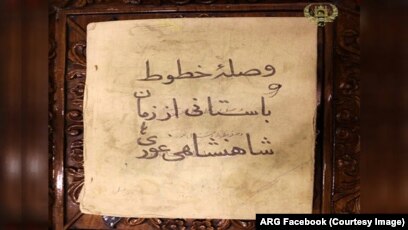 وصلهٔ خطوط
و
باستانی از زمان
شاهنشاهی غوری
ARG Facebook (Courtesy Image)